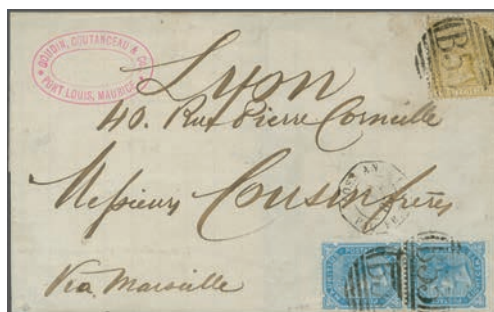 GOUDIN, COUTANCEAU & Co.
PORT LOUIS, MAURICE
B53
Lyon
40. Rue Pierre Corneille
Messieurs Cousin frères
Via Marseille
B53
B53